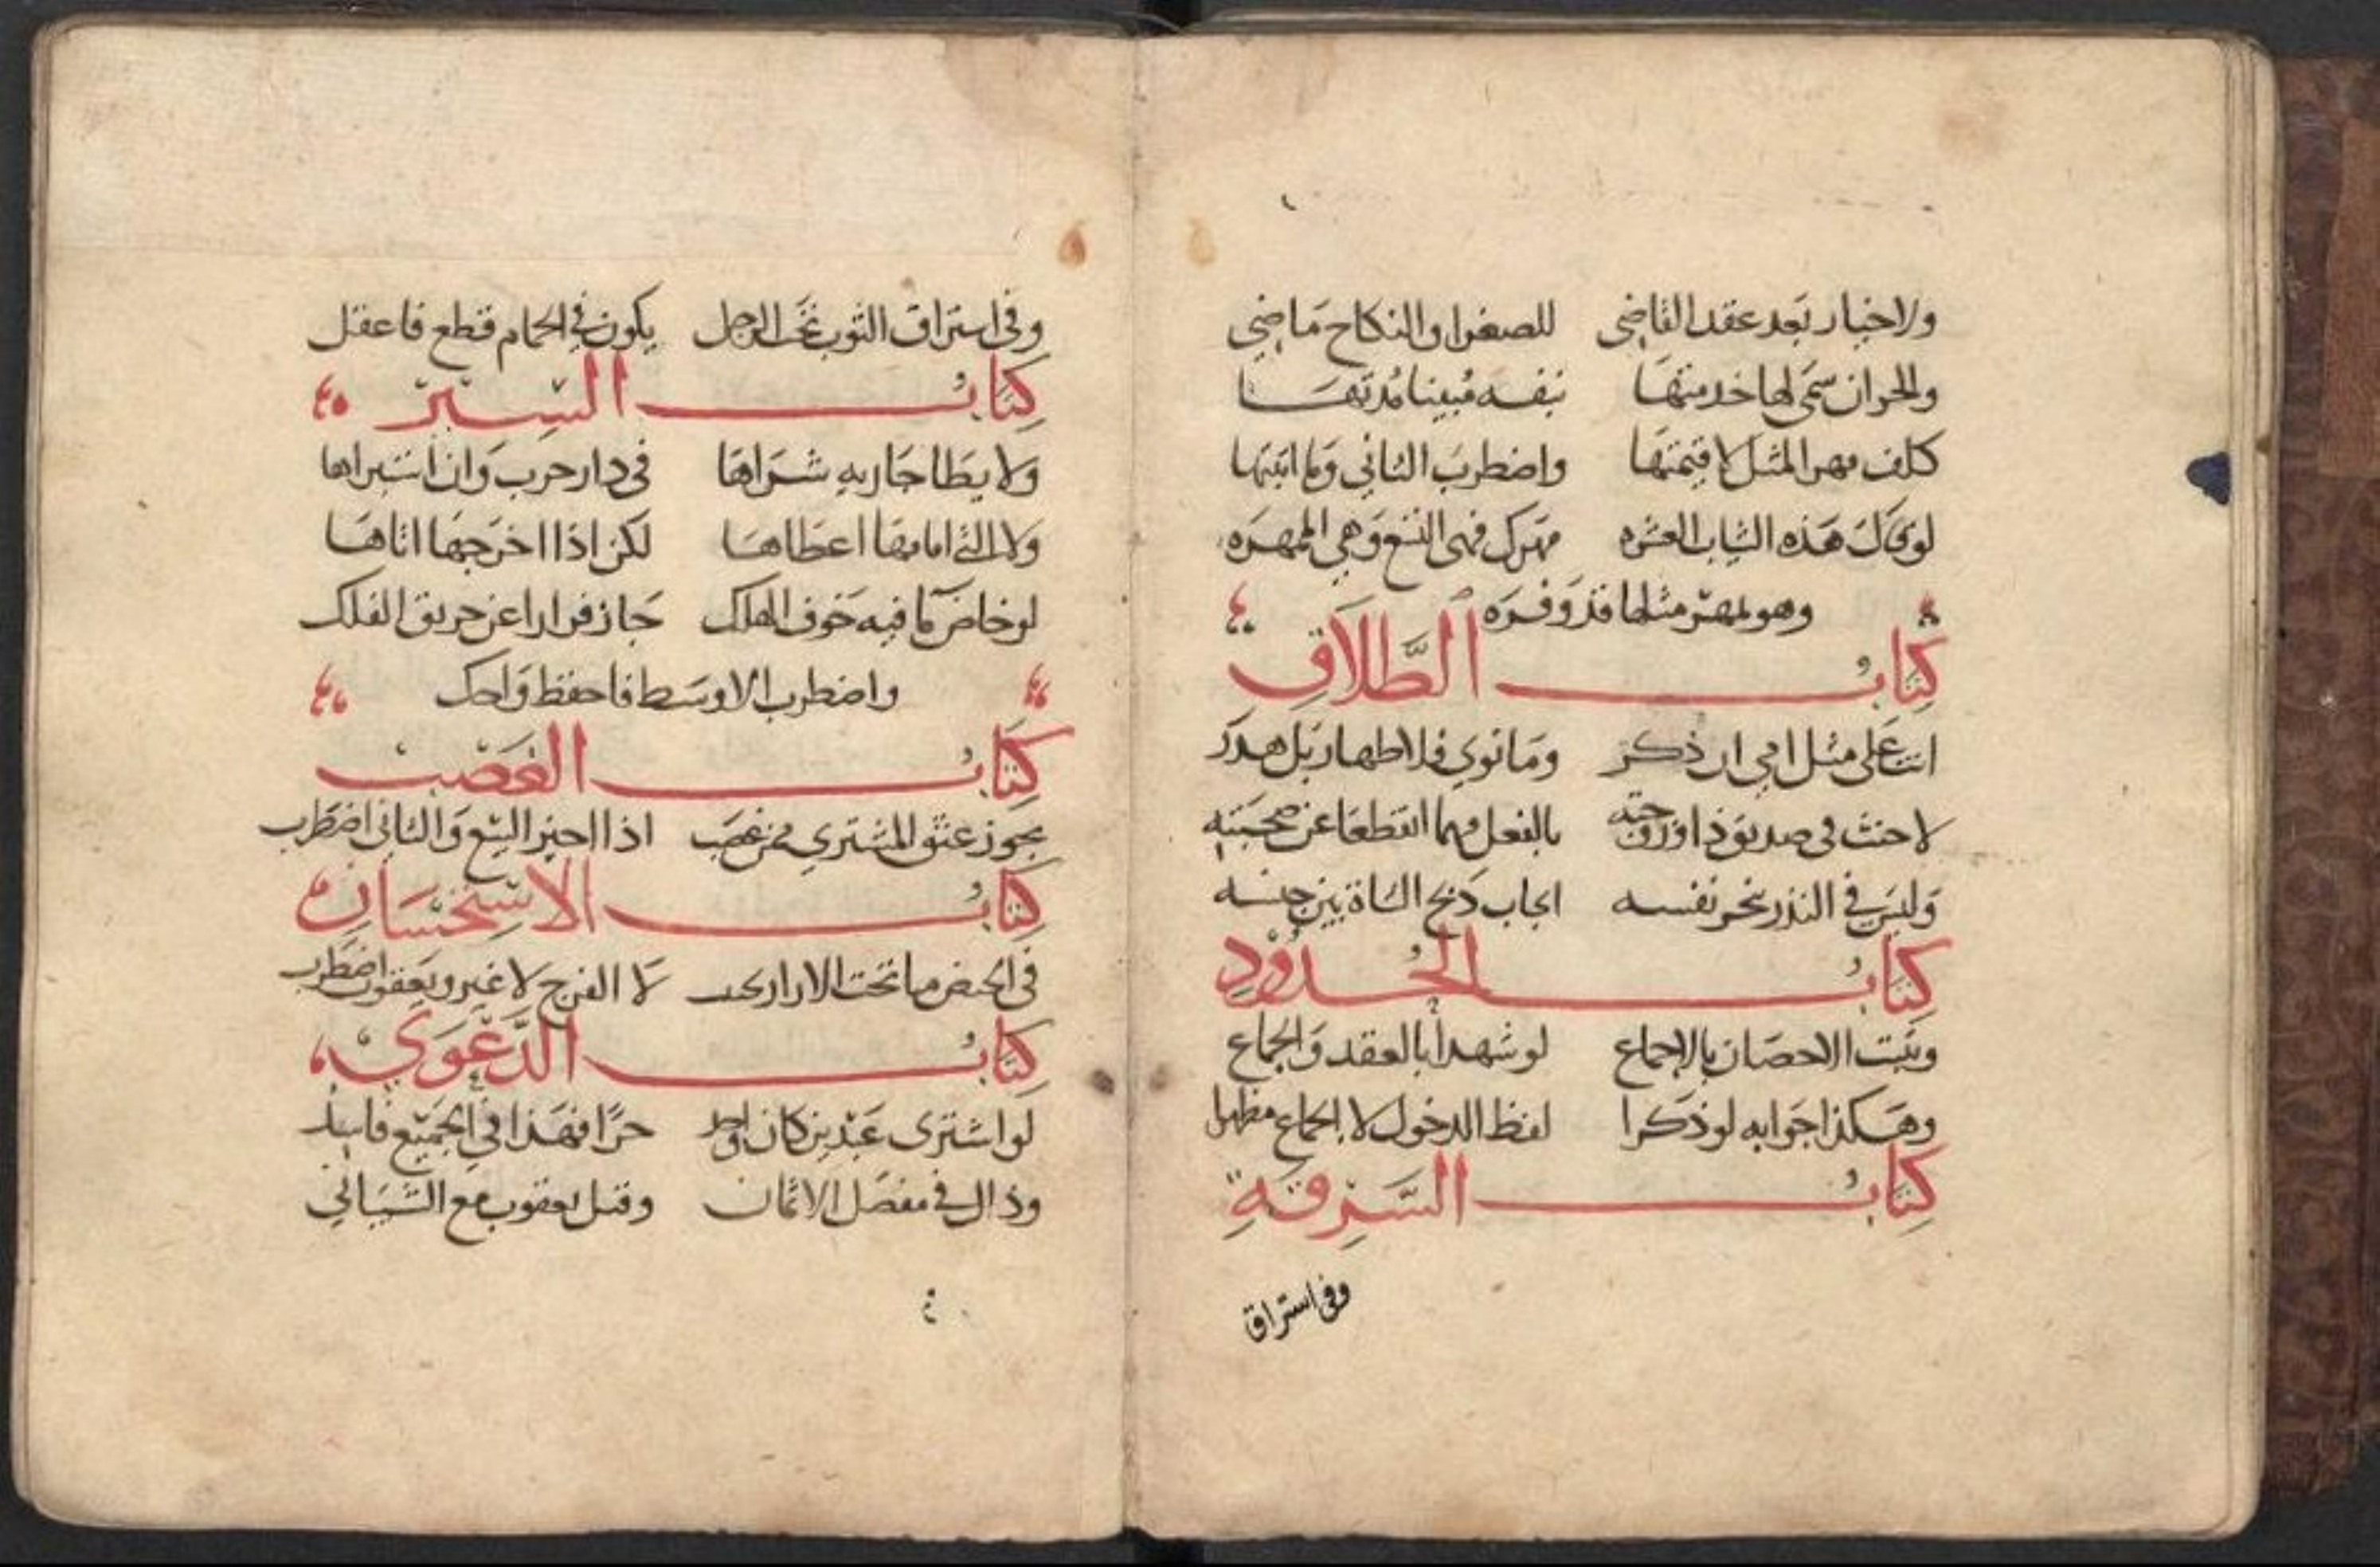 ولا خيار بعد عقد القاضي للصغرا والنكاح ماضي
والحر ان سمى لها خدمتها بنفسه مبينا مدتها
كلف مهر المثل لا قيمتها واضطرب الثاني وما اثبتها
لو قال هذه الثياب العشره مهرك فهي التسع وهي المهره
وهو لمهر مثلها قد وفره
كتاب الطلاق
انت على مثل امي ان ذكر وما نوي فلا ظهار بل هدر
لا حنث في صديق ذا او زوجته بالفعل مهما انقطعا عن صحبته
وليس في النذر بنحر نفسه ايجاب ذبح الشاة بين جنسه
كتاب الحدود
ويثبت الاحصان بالاجماع لو شهدا بالعقد والجماع
وهكذا جوابه لو ذكرا لفظ الدخول لا الجماع مظهرا
كتاب السرقة
وفي استراق
وفي استراق الثوب تحت الرجل يكون في الحمام قطع فاعقل
كتاب السير
ولا يطا جاريه شراها في دار حرب وان استبراها
ولا التي امامها اعطاها لكن اذا اخرجها اتاها
لو خاض ما فيه خوف الهلك جاز فرارا عن حريق الفلك
واضطرب الاوسط فاحفظ واحك
كتاب الغصب
يجوز عتق المشتري ممن غصب اذا اجيز البيع والثاني اضطرب
كتاب الاستحسان
في الحيض ما تحت الازار يجتنب لا الفرج لا غير ويعقوب اضطرب
كتاب الدعوى
لو اشترى عبدين كان واحد حرا فهذا في الجميع فاسد
وذاك في مفصل الاثمان وقيل يعقوب مع الشيباني